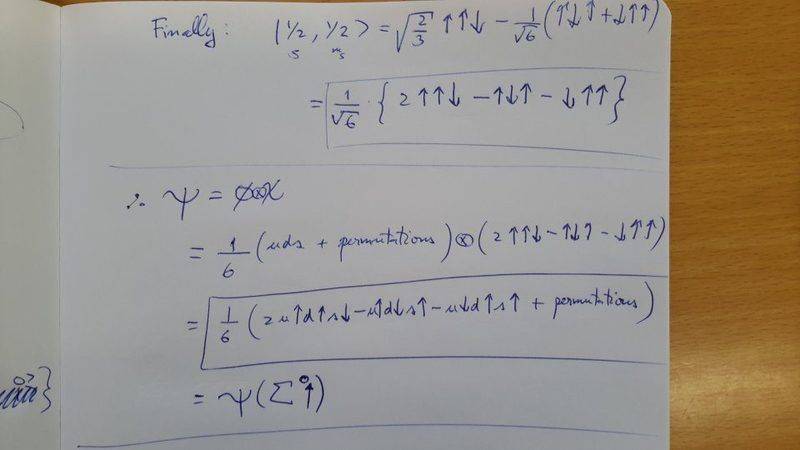 Finally: |1/2, 1/2> = √(2/3) ↑↑↓ − 1/√6 (↑↓↑ + ↓↑↑)
s m_s
= 1/√6 · { 2↑↑↓ − ↑↓↑ − ↓↑↑ }
∴ ψ = ϕ⊗χ
= 1/6 (uds + permutations) ⊗ (2↑↑↓ − ↑↓↑ − ↓↑↑)
= 1/6 (2u↑d↑s↓ − u↑d↓s↑ − u↓d↑s↑ + permutations)
= ψ(Σ⁰↑)